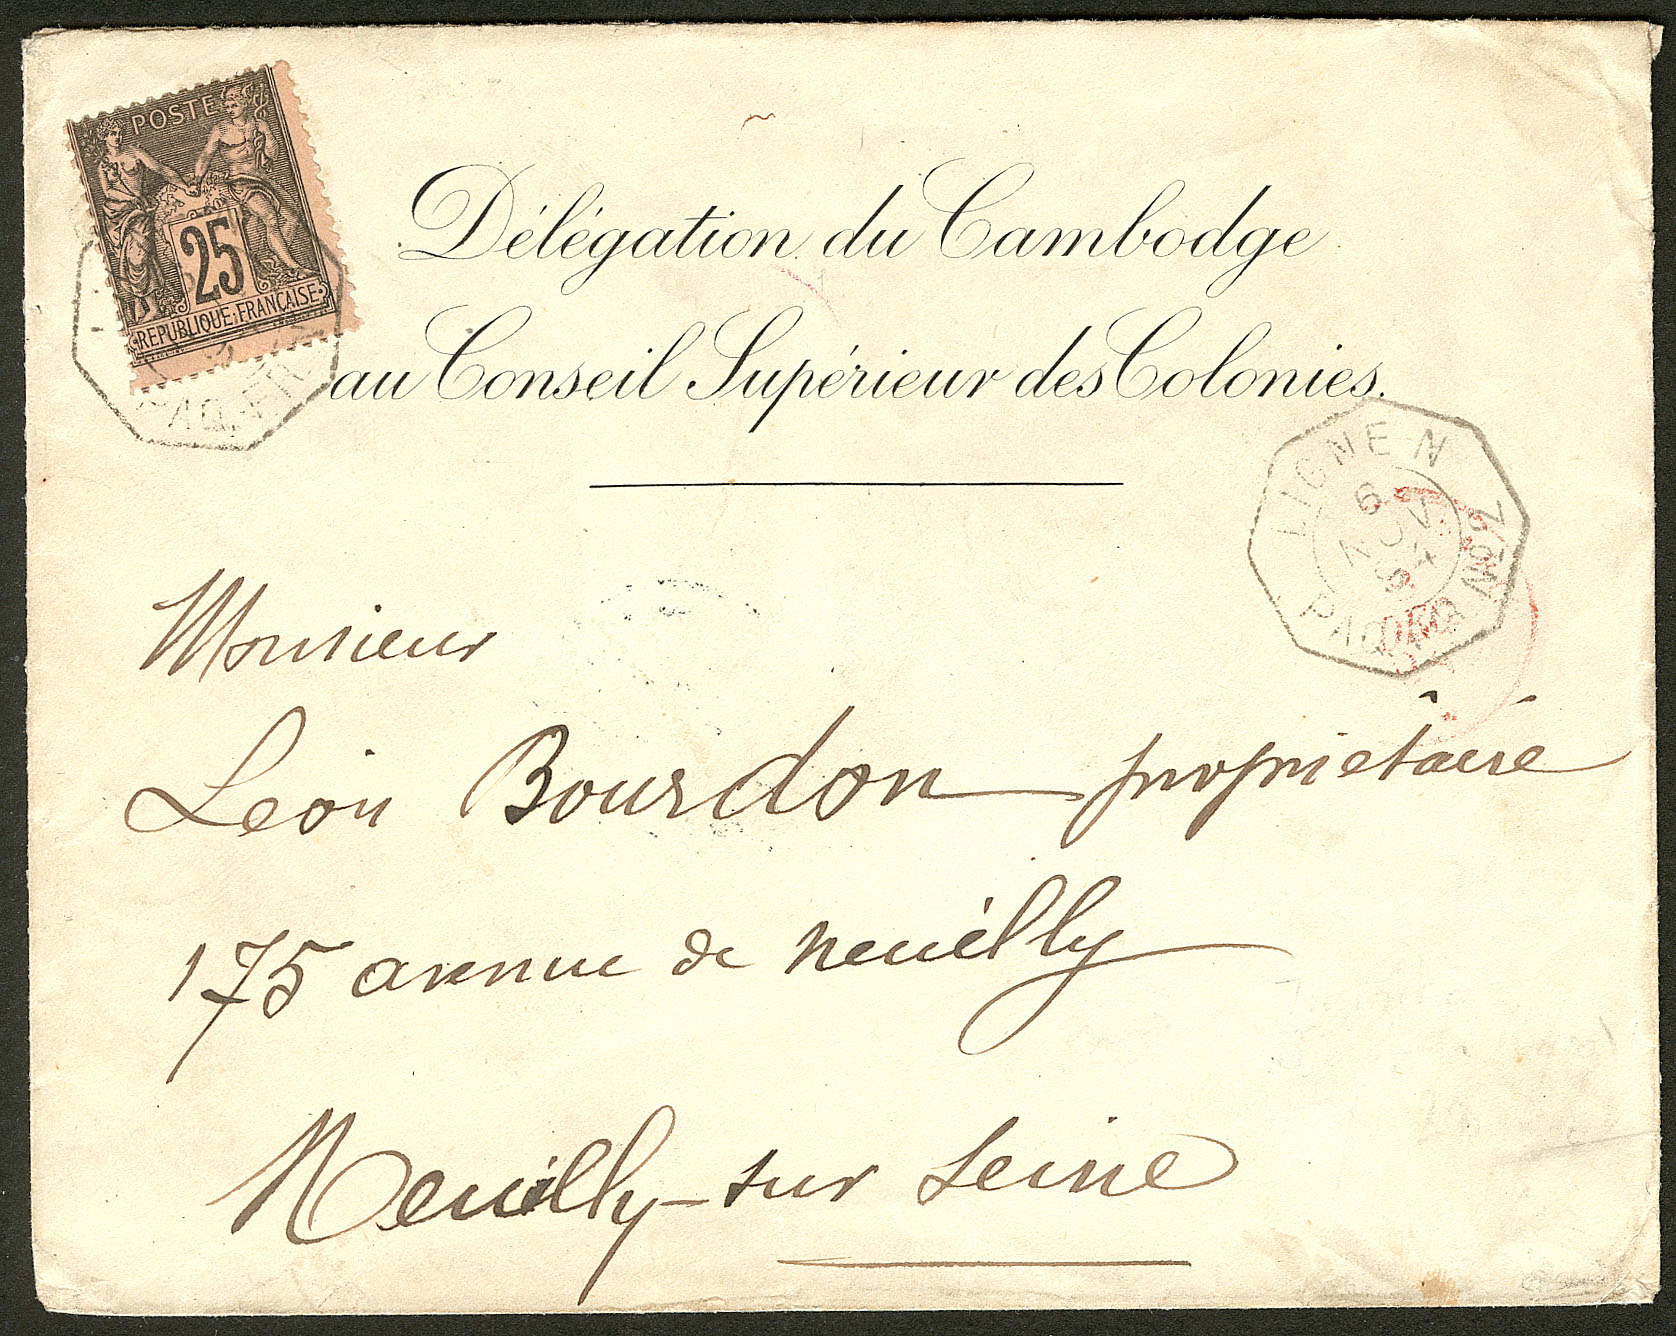 POSTE
25
REPUBLIQUE FRANÇAISE
PAQ. FR.
Délégation du Cambodge
au Conseil Supérieur des Colonies.
LIGNE N
6
NOV
94
PAQ. FR. Nº 2
Monsieur
Léon Bourdon propriétaire
175 avenue de Neuilly
Neuilly-sur Seine